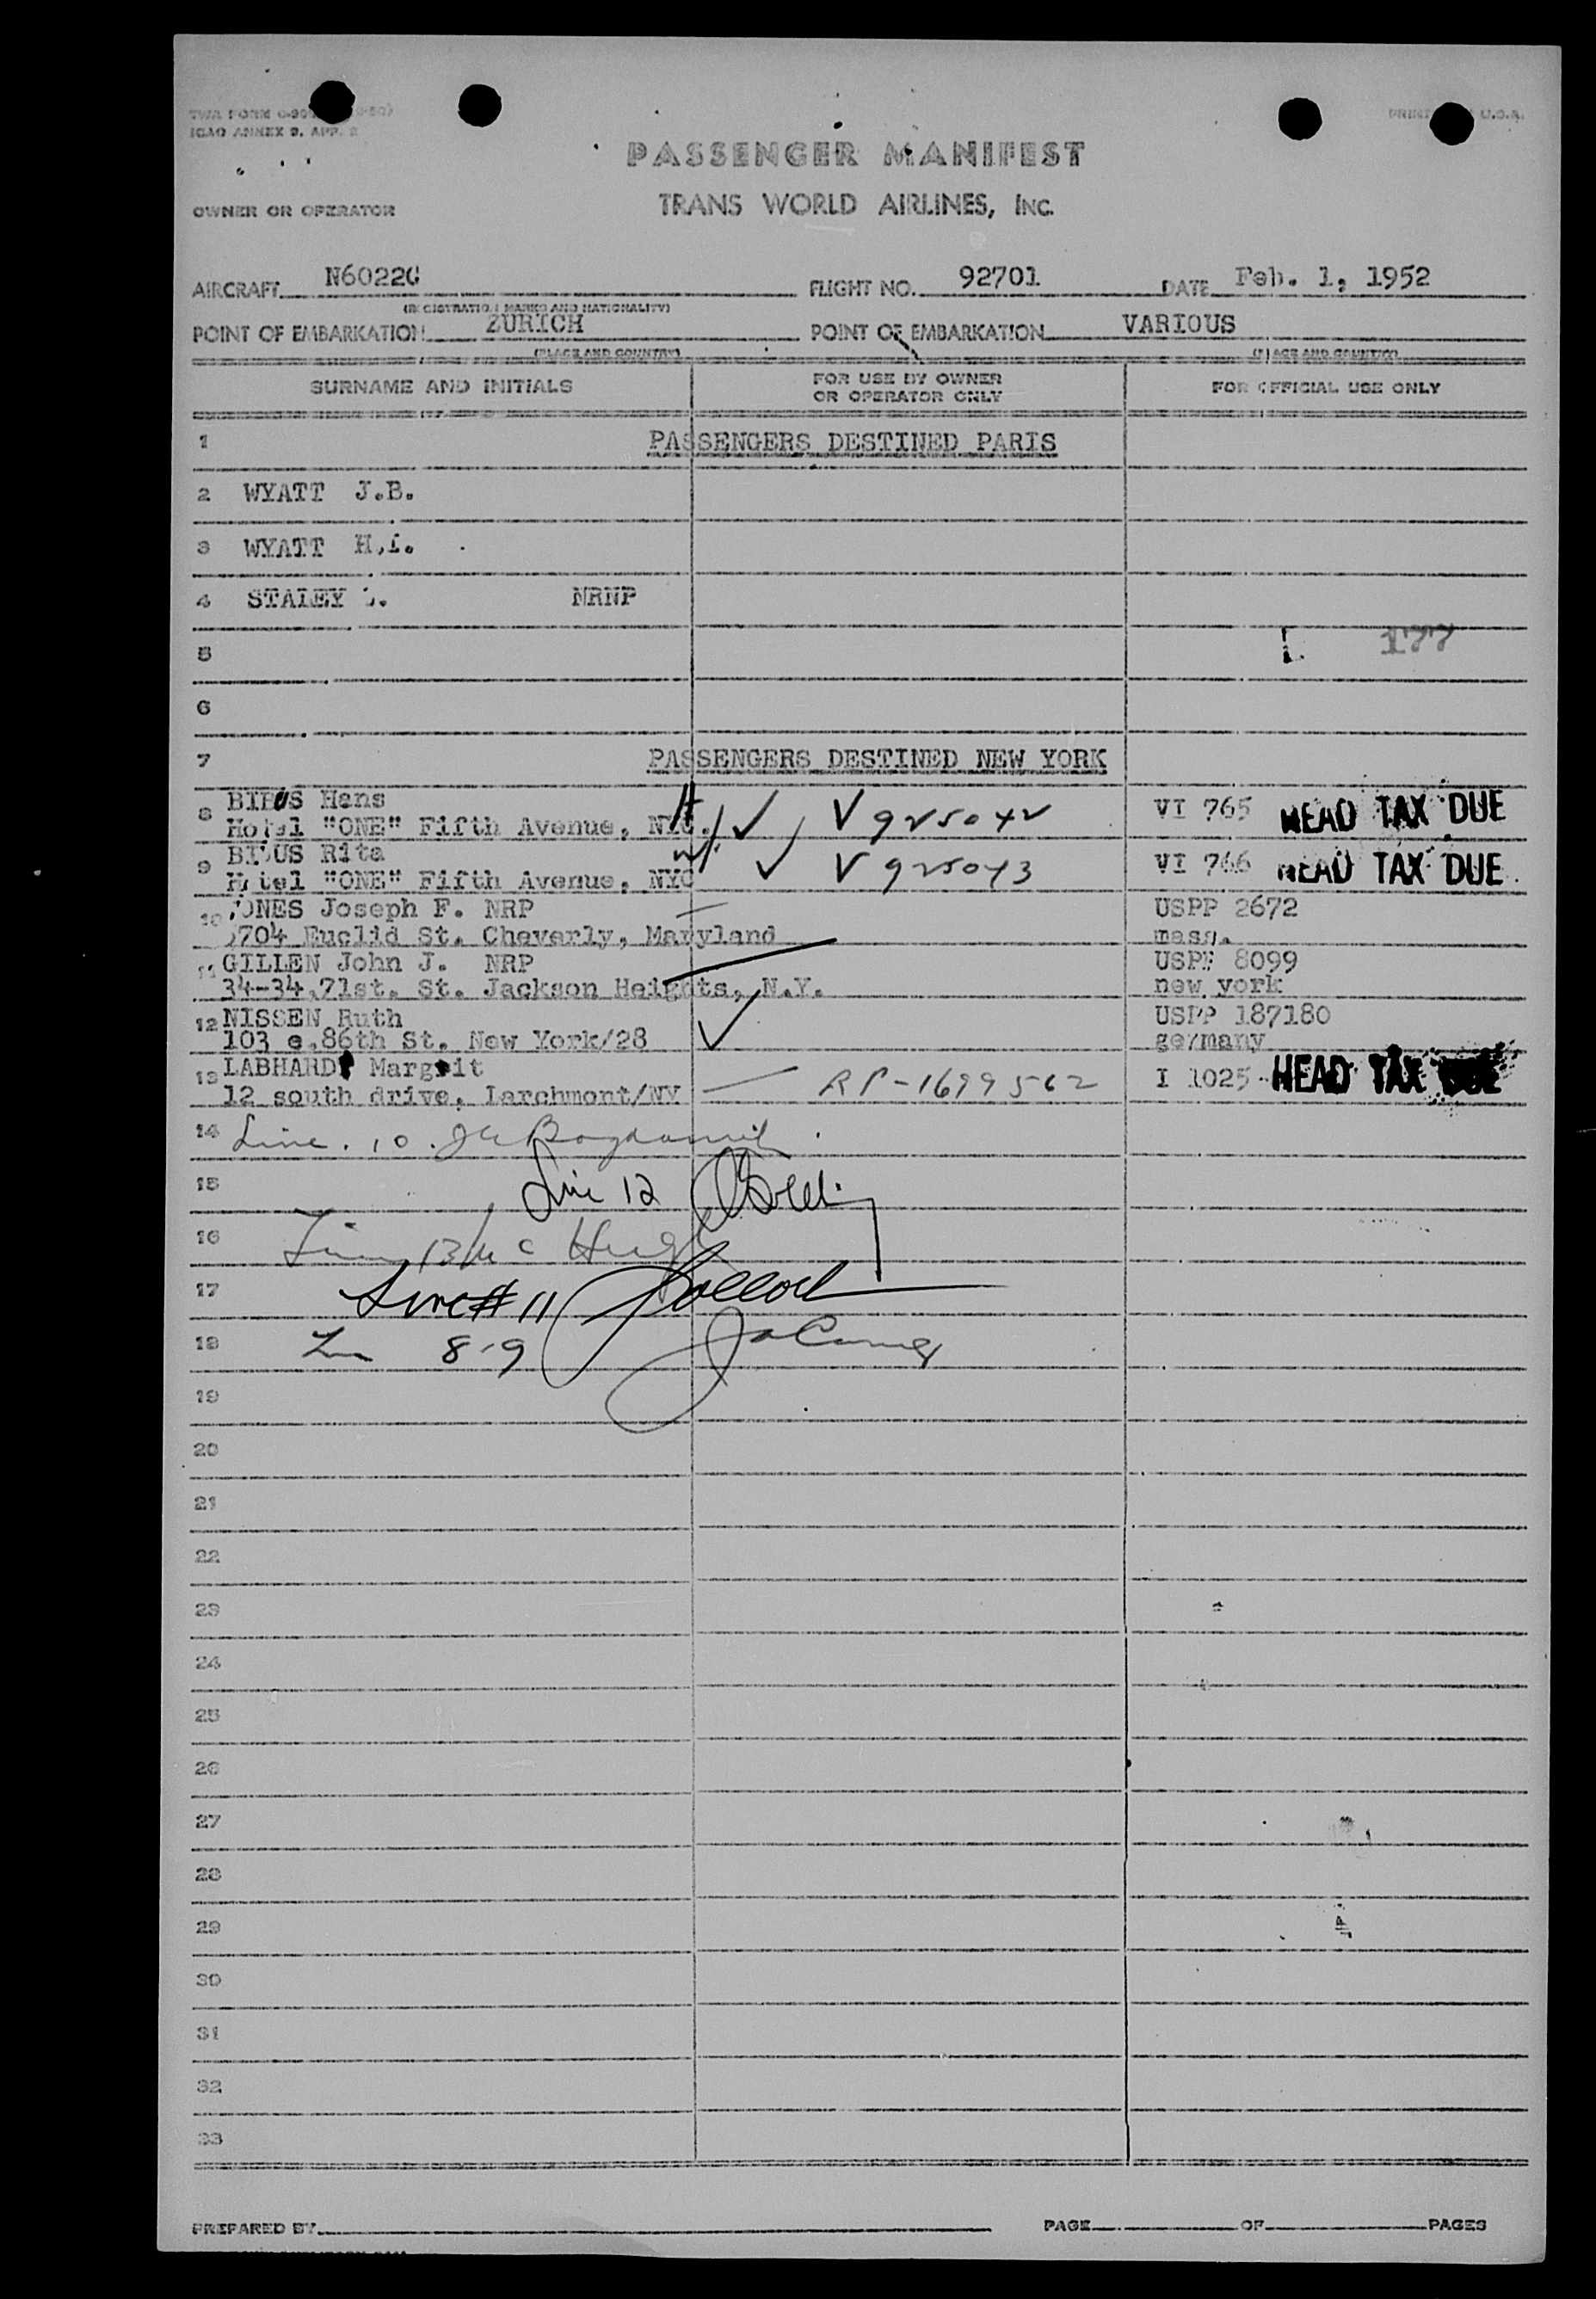 ICAO ANNEX 9, APP. 2
PASSENGER MANIFEST
OWNER OR OPERATOR
TRANS WORLD AIRLINES, INC.
AIRCRAFT N6022C FLIGHT NO. 92701 DATE Feb. 1, 1952
(REGISTRATION MARKS AND NATIONALITY)
POINT OF EMBARKATION ZURICH POINT OF EMBARKATION VARIOUS
(PLACE AND COUNTRY) (PLACE AND COUNTRY)
SURNAME AND INITIALS FOR USE BY OWNER OR OPERATOR ONLY FOR OFFICIAL USE ONLY
1 PASSENGERS DESTINED PARIS
2 WYATT J.B.
3 WYATT H.I.
4 STALEY NRNP
5 177
6
7 PASSENGERS DESTINED NEW YORK
8 Hans
Hotel "ONE" Fifth Avenue, NYC. V 925042 VI 765 HEAD TAX DUE
9 Rita
Hotel "ONE" Fifth Avenue, NYC V 925043 VI 766 HEAD TAX DUE
10 JONES Joseph F. NRP USPP 2672
5704 Euclid St. Cheverly, Maryland mass.
11 GILLEN John J. NRP USPP 8099
34-34,71st. St. Jackson Heights, N.Y. new york
12 NISSEN Ruth USPP 187180
103 e.86th St. New York/28 germany
13 LABHARDT Margrit
12 south drive, Larchmont/NY RP-1699562 I 1025 HEAD TAX DUE
14 Line. 10.
15 Line 12
16 Line 13 McHugh
17 Line # 11 Pollock
18 8-9
19
20
21
22
23
24
25
26
27
28
29
30
31
32
33
PREPARED BY PAGE OF PAGES